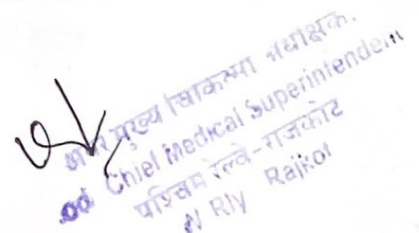 मुख्य चिकित्सा अधीक्षक
Chief Medical Superintendent
पश्चिम रेल्वे-राजकोट
W Rly Rajkot